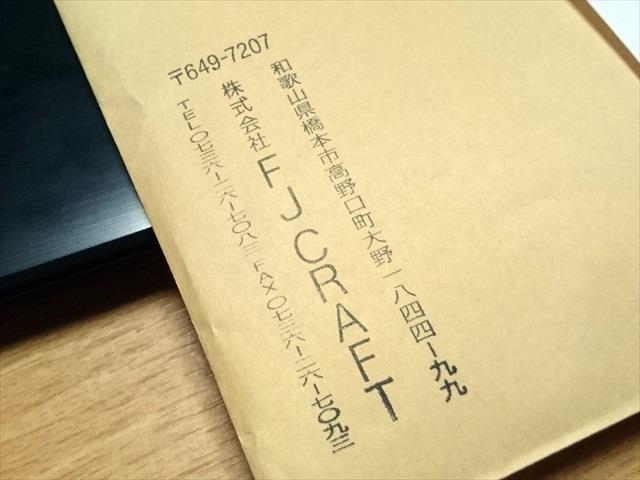 〒649-7207
和歌山県橋本市高野口町大野一八四四ー九九
株式会社 FJ CRAFT
TEL〇七三六ー二六ー七〇八三 FAX〇七三六ー二六ー七〇九三